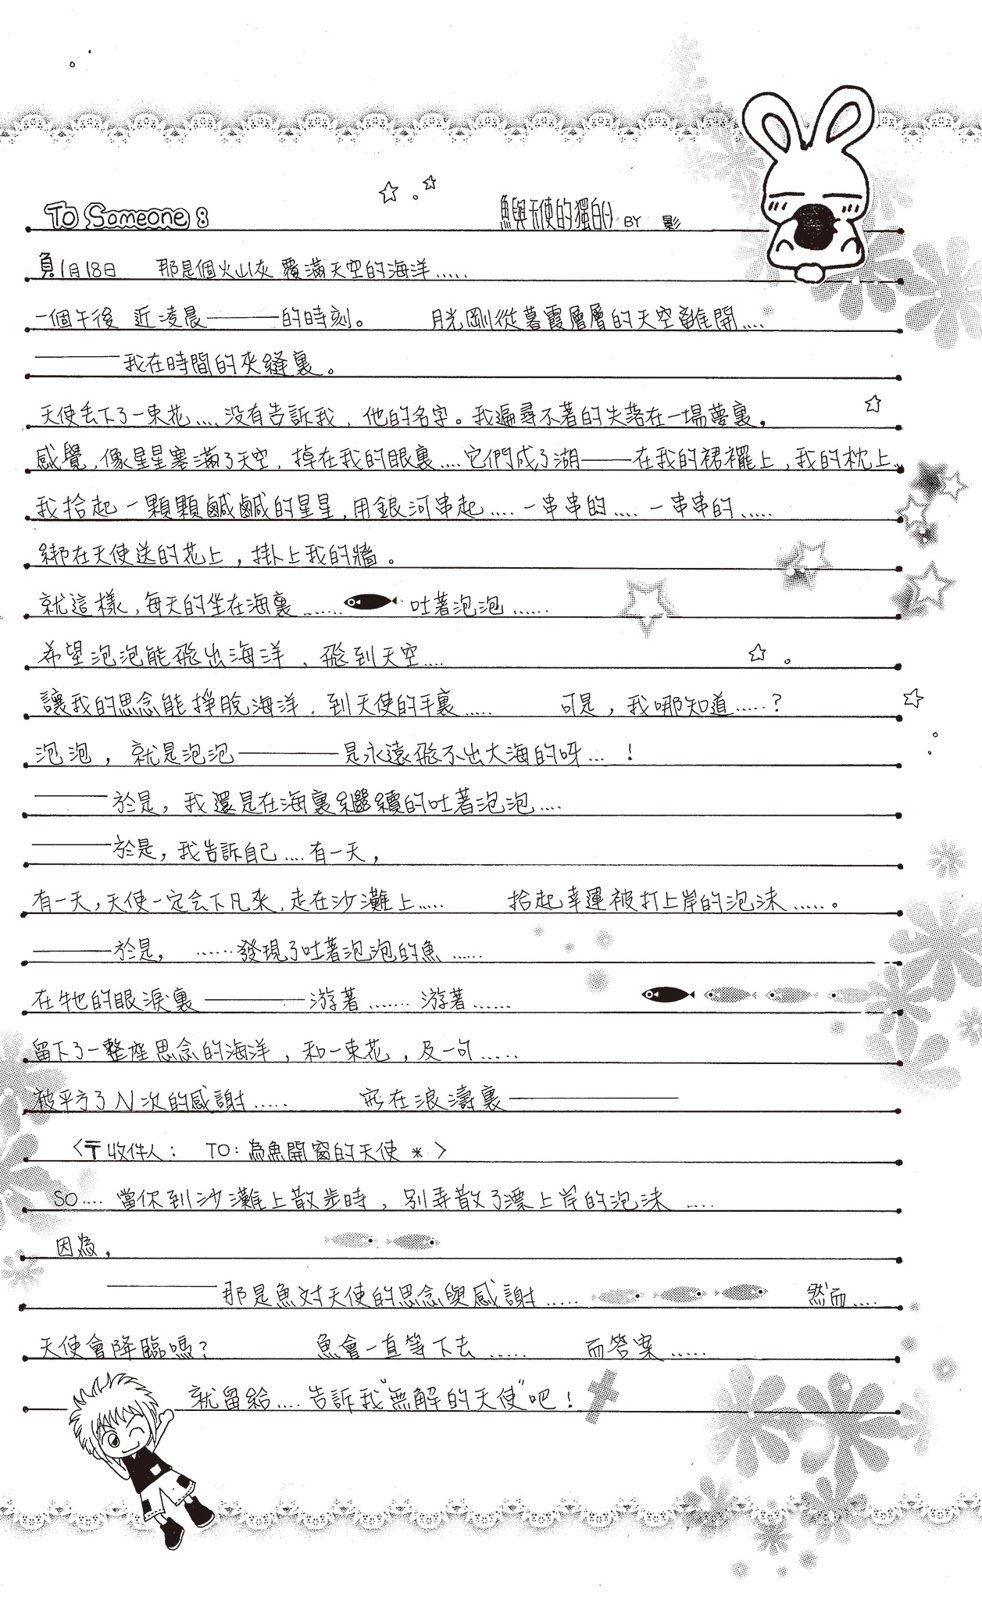 To Someone :
魚與天使的獨白(-) BY 影
負1月18日 那是個火山灰覆滿天空的海洋.....
一個午後 近凌晨————的時刻。 月光剛從暮霞層層的天空離開....
————我在時間的夾縫裏。
天使丟下了一束花....沒有告訴我，他的名字。我遍尋不著的失落在一場夢裏。
感覺，像星星塞滿了天空，掉在我的眼裏....它們成了湖——在我的裙襬上，我的枕上..
我拾起一顆顆鹹鹹的星星，用銀河串起.... 一串串的..... 一串串的.....
綁在天使送的花上，掛上我的牆。
就這樣，每天的坐在海裏...... 吐著泡泡......
希望泡泡能飛出海洋，飛到天空....
讓我的思念能掙脫海洋，到天使的手裏..... 可是，我哪知道.....？
泡泡，就是泡泡————是永遠飛不出大海的呀...！
————於是，我還是在海裏繼續的吐著泡泡....
————於是，我告訴自己....有一天，
有一天，天使一定会下凡來，走在沙灘上..... 拾起幸運被打上岸的泡沫.....。
————於是， ......發現了吐著泡泡的魚......
在牠的眼淚裏————游著....... 游著......
留下了一整座思念的海洋，和一束花，及一句.....
被平方了N次的感謝..... 在浪濤裏————
〈〒收件人： TO：為魚開窗的天使 * 〉
SO.... 當你到沙灘上散步時，別弄散了漂上岸的泡沫 .....
因為，
————那是魚对天使的思念與感謝..... 然而....
天使會降臨嗎？ 魚會一直等下去...... 而答案.....
就留給....告訴我"無解的天使"吧！